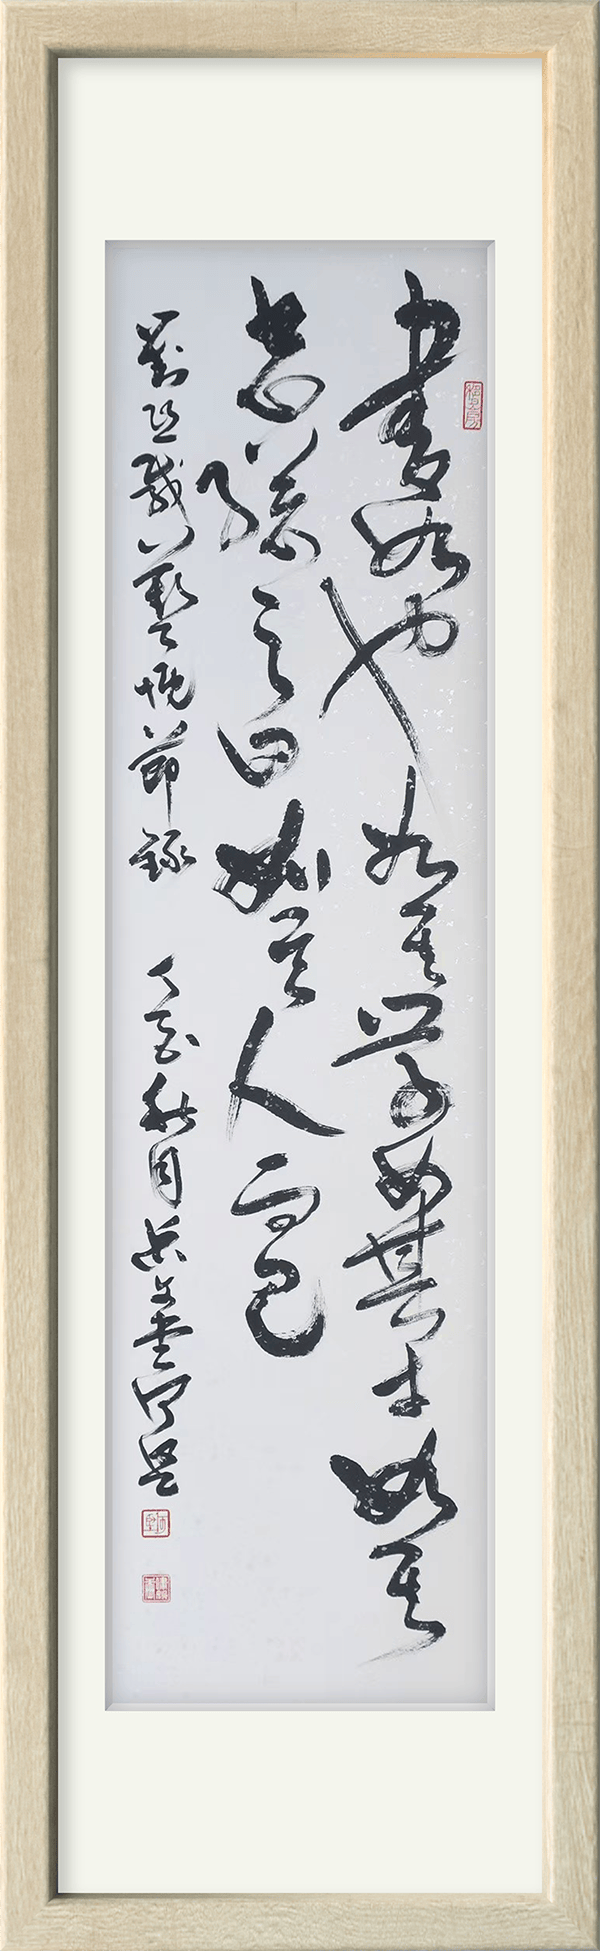 書如也如其學如其才如其
志總之曰如其人而已
劉熙載藝概節錄
秋月